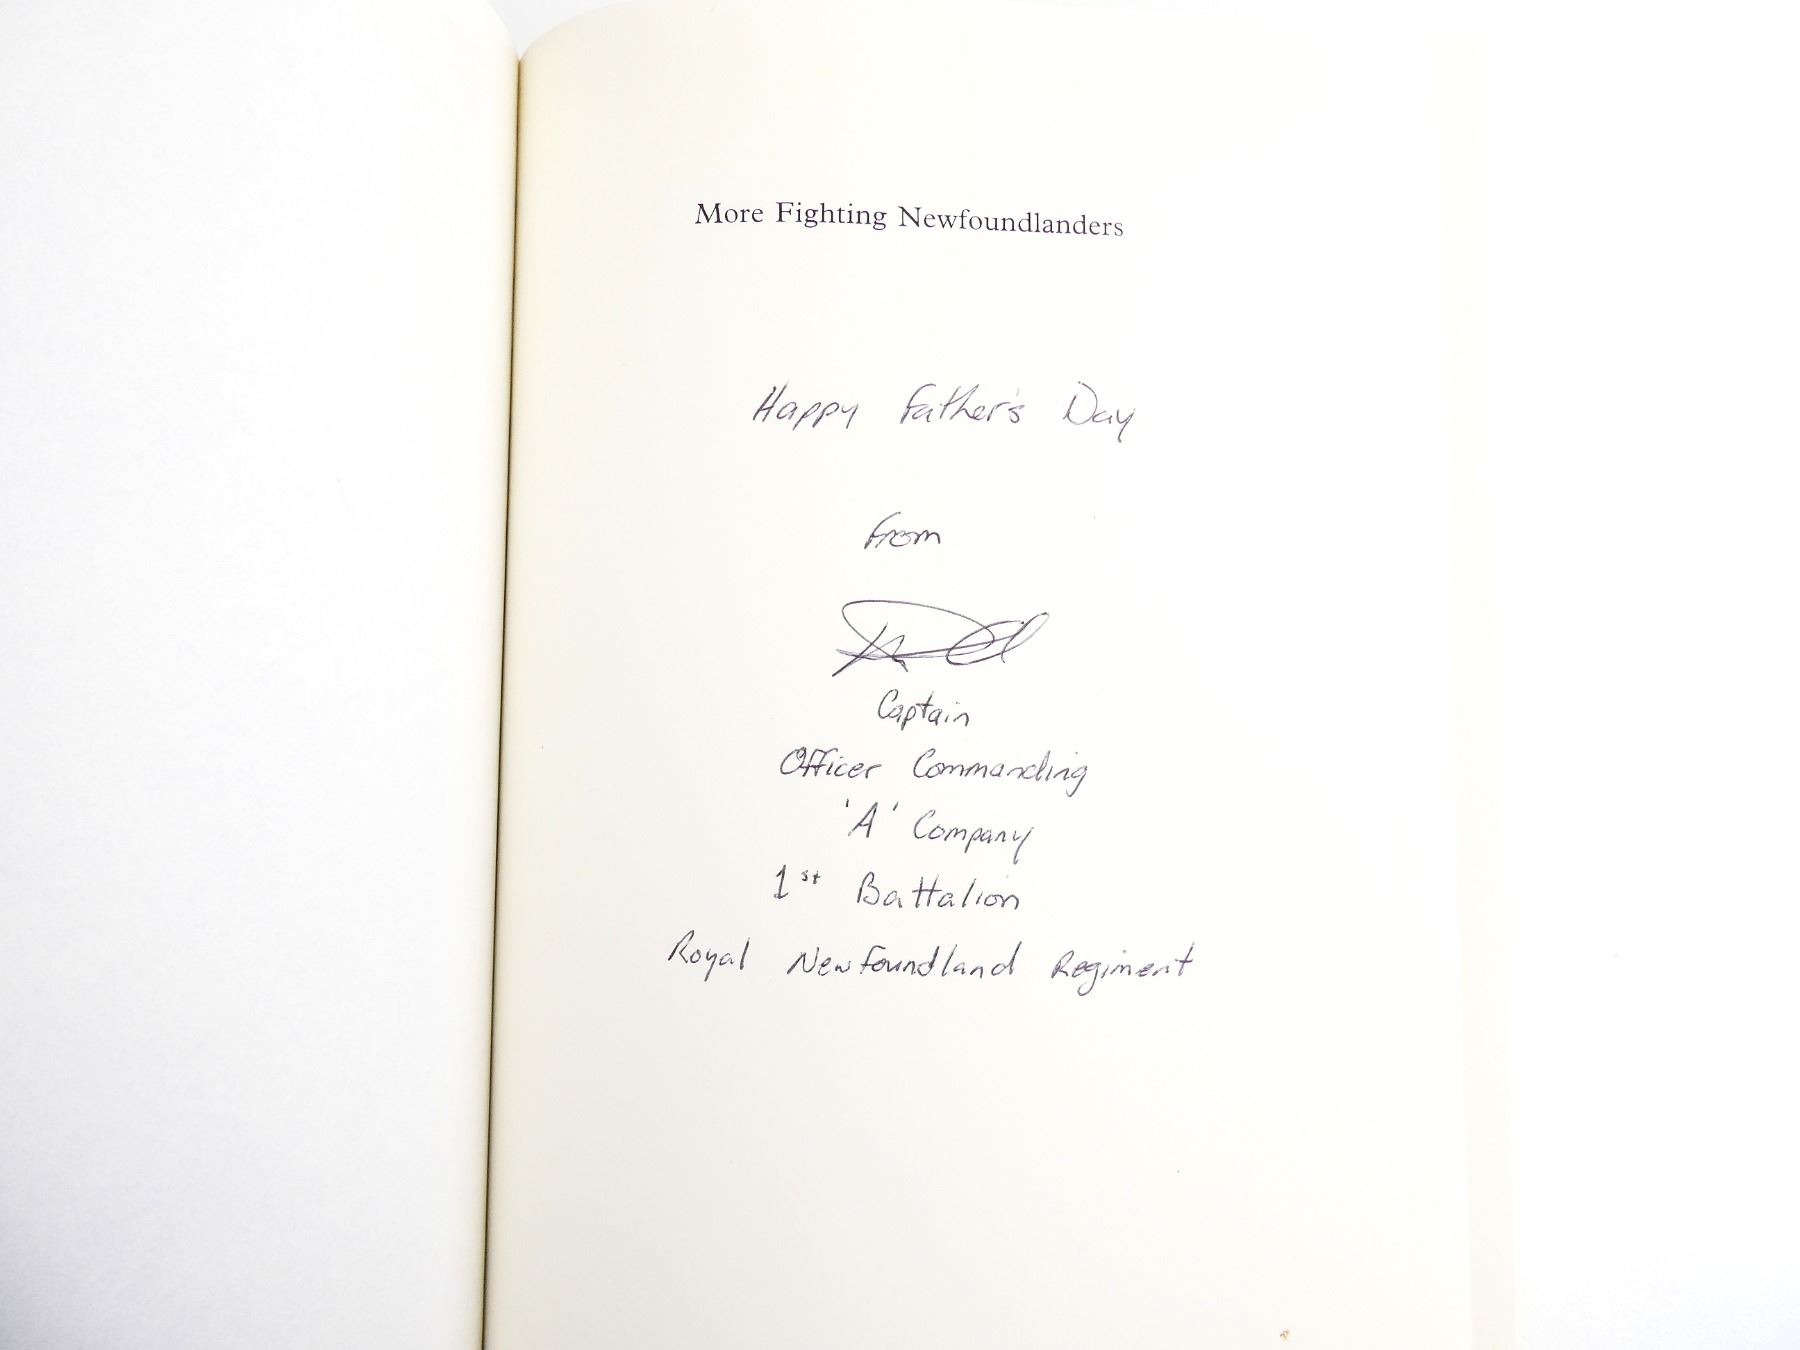 More Fighting Newfoundlanders
Happy Father's Day
From
Captain
Officer Commanding
'A' Company
1st Battalion
Royal Newfoundland Regiment